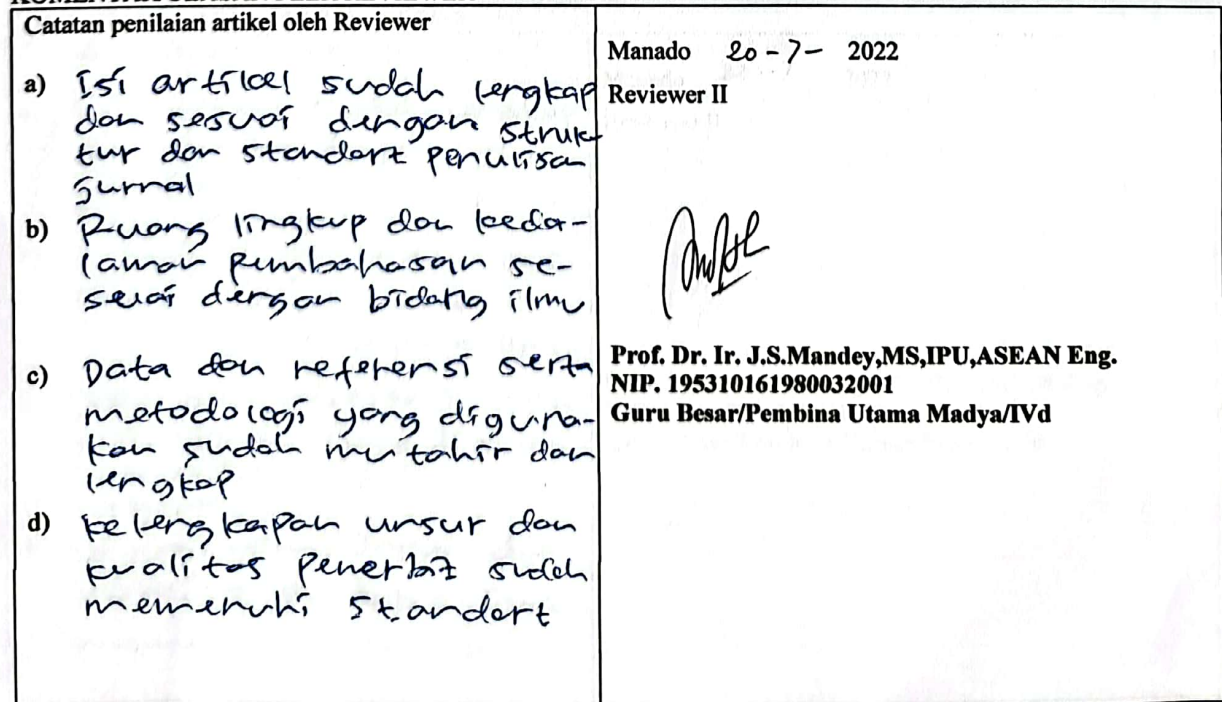 Catatan penilaian artikel oleh Reviewer
a) Isi artikel sudah lengkap
dan sesuai dengan struk-
tur dan standart penulisan
jurnal
b) Ruang lingkup dan keda-
laman pembahasan se-
suai dengan bidang ilmu
c) Data dan referensi serta
metodologi yang diguna-
kan sudah mutahir dan
lengkap
d) kelengkapan unsur dan
kualitas Penerbit sudah
memenuhi standart
Manado 20-7- 2022
Reviewer II
Prof. Dr. Ir. J.S.Mandey,MS,IPU,ASEAN Eng.
NIP. 195310161980032001
Guru Besar/Pembina Utama Madya/IVd